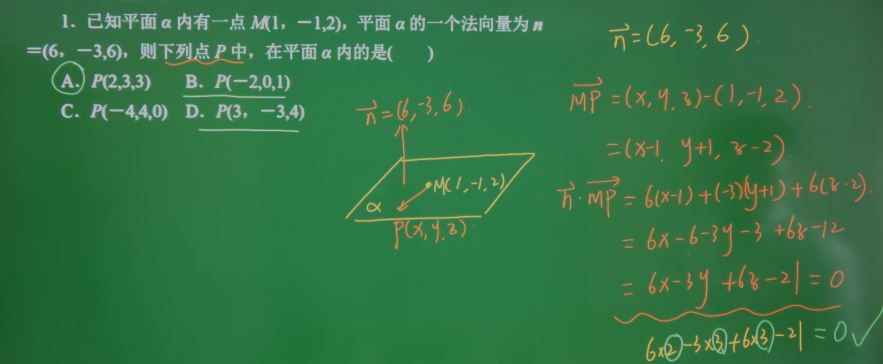 1. 已知平面 α 内有一点 M(1，－1,2)，平面 α 的一个法向量为 n
＝(6，－3,6)，则下列点 P 中，在平面 α 内的是(　　)
A. P(2,3,3)　B. P(－2,0,1)
C. P(－4,4,0)　D. P(3，－3,4)
n⃗=(6,-3,6).
M(1,-1,2)
α
P(x,y,z).
n⃗=(6,-3,6).
MP⃗=(x,y,z)-(1,-1,2).
=(x-1, y+1, z-2)
n⃗·MP⃗=6(x-1)+(-3)(y+1)+6(z-2).
=6x-6-3y-3+6z-12
=6x-3y+6z-21=0
6×2-3×3+6×3-21=0✓